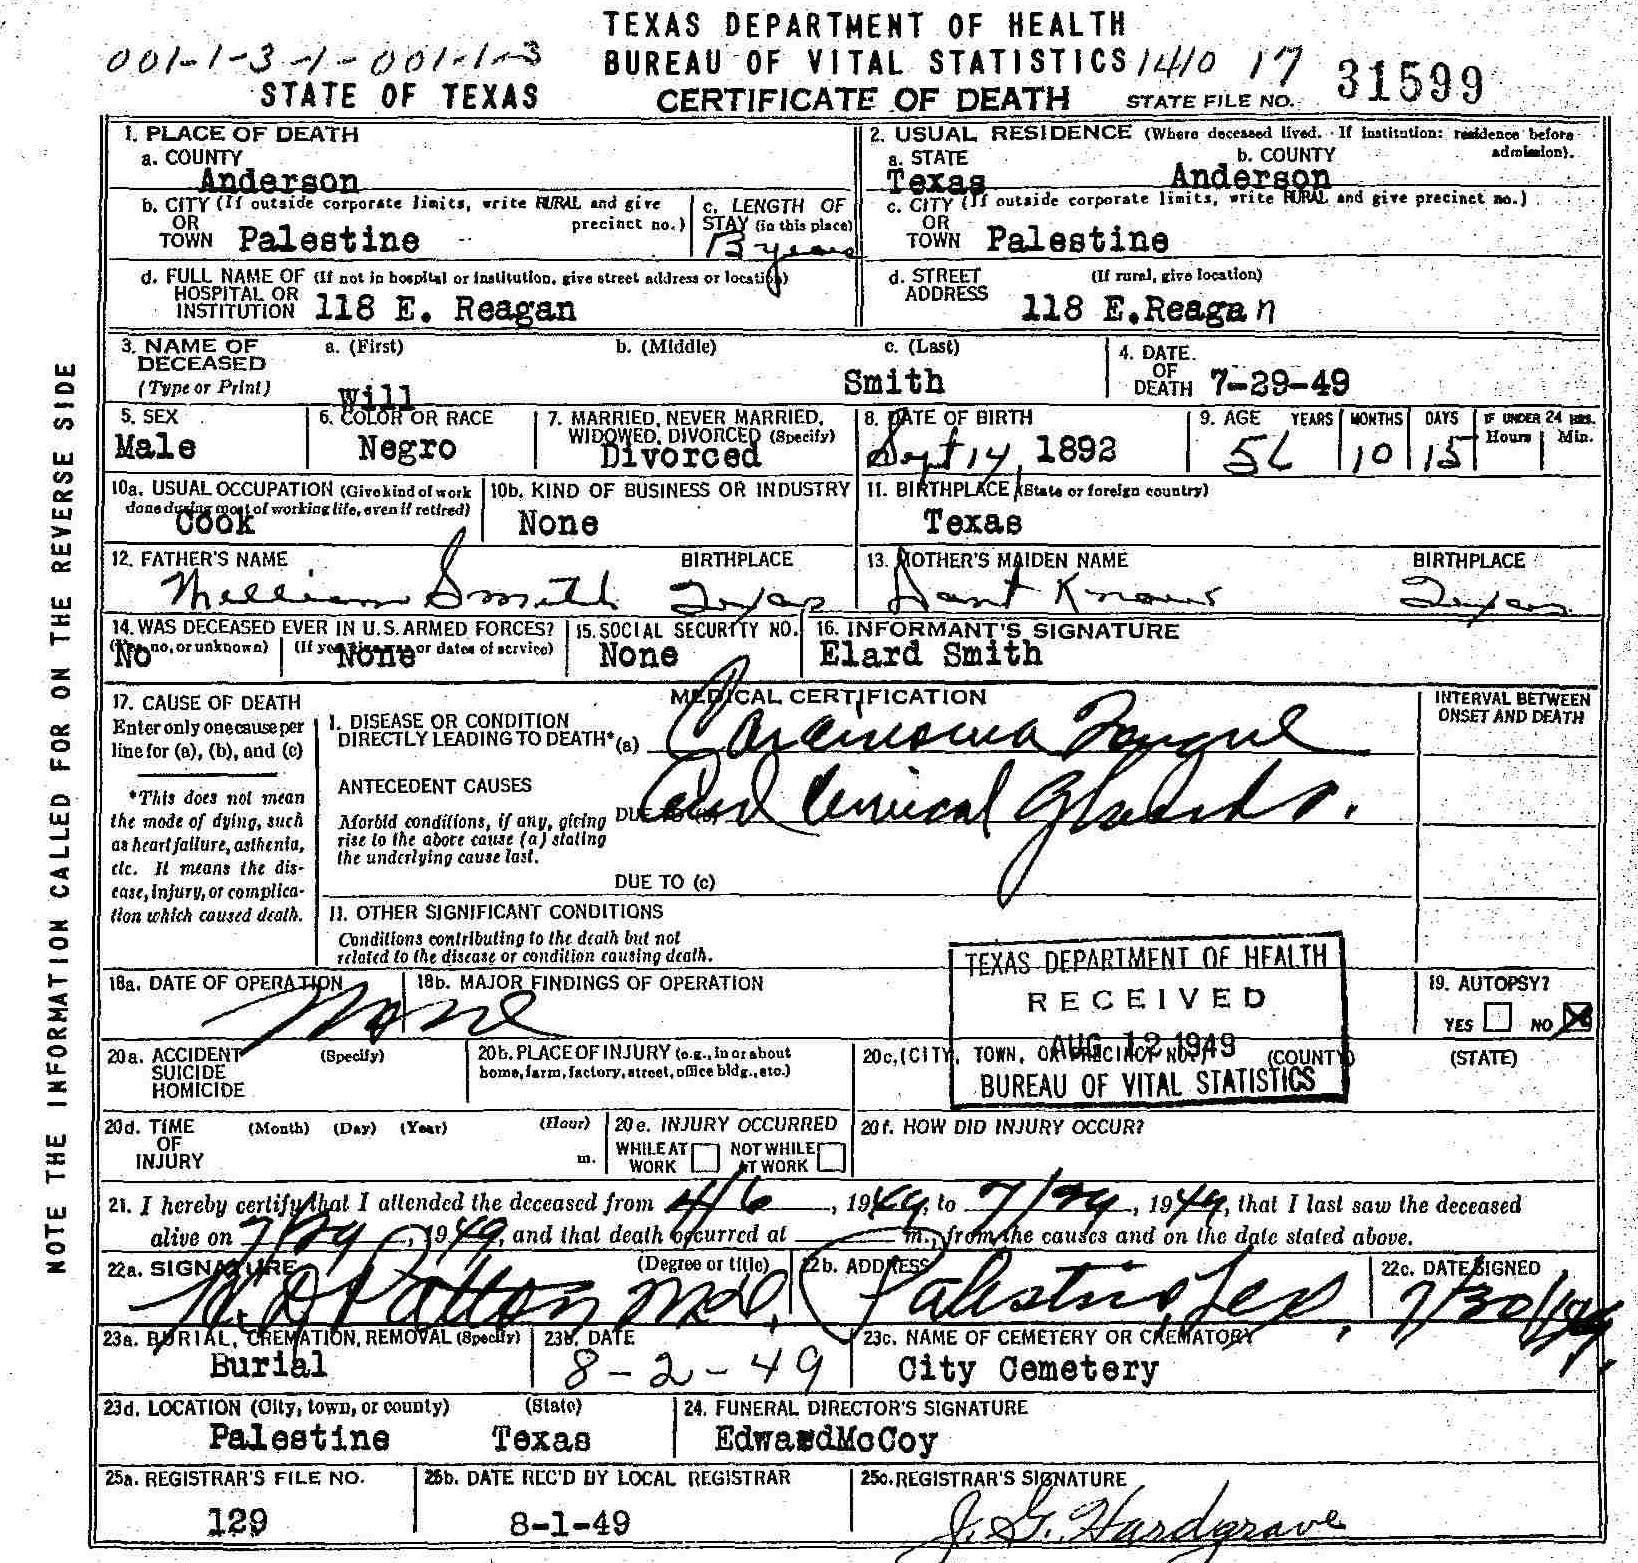 TEXAS DEPARTMENT OF HEALTH
001-1-3-1-001-1-3 BUREAU OF VITAL STATISTICS 1410 17 31599
STATE OF TEXAS CERTIFICATE OF DEATH STATE FILE NO.
1. PLACE OF DEATH
a. COUNTY
Anderson
2. USUAL RESIDENCE (Where deceased lived. If institution: residence before admission).
a. STATE b. COUNTY
Texas Anderson
b. CITY (If outside corporate limits, write RURAL and give precinct no.)
OR
TOWN Palestine
c. LENGTH OF
STAY (in this place)
13 years
c. CITY (If outside corporate limits, write RURAL and give precinct no.)
OR
TOWN Palestine
d. FULL NAME OF (If not in hospital or institution, give street address or location)
HOSPITAL OR
INSTITUTION 118 E. Reagan
d. STREET (If rural, give location)
ADDRESS
118 E.Reagan
3. NAME OF a. (First) b. (Middle) c. (Last)
DECEASED
(Type or Print) Will Smith
4. DATE
OF
DEATH 7-29-49
5. SEX
Male
6. COLOR OR RACE
Negro
7. MARRIED, NEVER MARRIED,
WIDOWED, DIVORCED (Specify)
Divorced
8. DATE OF BIRTH
Sept 14, 1892
9. AGE YEARS MONTHS DAYS IF UNDER 24 HRS.
Hours Min.
56 10 15
10a. USUAL OCCUPATION (Give kind of work
done during most of working life, even if retired)
Cook
10b. KIND OF BUSINESS OR INDUSTRY
None
11. BIRTHPLACE (State or foreign country)
Texas
12. FATHER'S NAME BIRTHPLACE
William Smith Texas
13. MOTHER'S MAIDEN NAME BIRTHPLACE
Dont Know Texas
14. WAS DECEASED EVER IN U.S. ARMED FORCES?
(Yes, no, or unknown) (If yes, give war or dates of service)
No None
15. SOCIAL SECURITY NO.
None
16. INFORMANT'S SIGNATURE
Elard Smith
17. CAUSE OF DEATH
Enter only one cause per
line for (a), (b), and (c)
*This does not mean
the mode of dying, such
as heart failure, asthenia,
etc. It means the dis-
ease, injury, or complica-
tion which caused death.
MEDICAL CERTIFICATION
INTERVAL BETWEEN
ONSET AND DEATH
I. DISEASE OR CONDITION
DIRECTLY LEADING TO DEATH* (a) Carcinoma Tongue
ANTECEDENT CAUSES
and Cervical Glands.
Morbid conditions, if any, giving DUE TO (b)
rise to the above cause (a) stating
the underlying cause last.
DUE TO (c)
II. OTHER SIGNIFICANT CONDITIONS
Conditions contributing to the death but not
related to the disease or condition causing death.
TEXAS DEPARTMENT OF HEALTH
RECEIVED
AUG 12 1949
BUREAU OF VITAL STATISTICS
18a. DATE OF OPERATION
None
18b. MAJOR FINDINGS OF OPERATION
19. AUTOPSY?
YES NO
20a. ACCIDENT (Specify)
SUICIDE
HOMICIDE
20b. PLACE OF INJURY (e.g., in or about
home, farm, factory, street, office bldg., etc.)
20c. (CITY, TOWN, OR PRECINCT NO.) (COUNTY) (STATE)
20d. TIME (Month) (Day) (Year) (Hour)
OF
INJURY m.
20e. INJURY OCCURRED
WHILE AT NOT WHILE
WORK AT WORK
20f. HOW DID INJURY OCCUR?
21. I hereby certify that I attended the deceased from 4/6, 1949, to 7/29, 1949, that I last saw the deceased
alive on 7/29, 1949, and that death occurred at m., from the causes and on the date stated above.
22a. SIGNATURE (Degree or title)
Patton MD.
22b. ADDRESS
Palestine, Tex.
22c. DATE SIGNED
7/30/1949.
23a. BURIAL, CREMATION, REMOVAL (Specify)
Burial
23b. DATE
8-2-49
23c. NAME OF CEMETERY OR CREMATORY
City Cemetery
23d. LOCATION (City, town, or county) (State)
Palestine Texas
24. FUNERAL DIRECTOR'S SIGNATURE
EdwardMcCoy
25a. REGISTRAR'S FILE NO.
129
25b. DATE REC'D BY LOCAL REGISTRAR
8-1-49
25c. REGISTRAR'S SIGNATURE
J. G. Hardgrave
NOTE THE INFORMATION CALLED FOR ON THE REVERSE SIDE